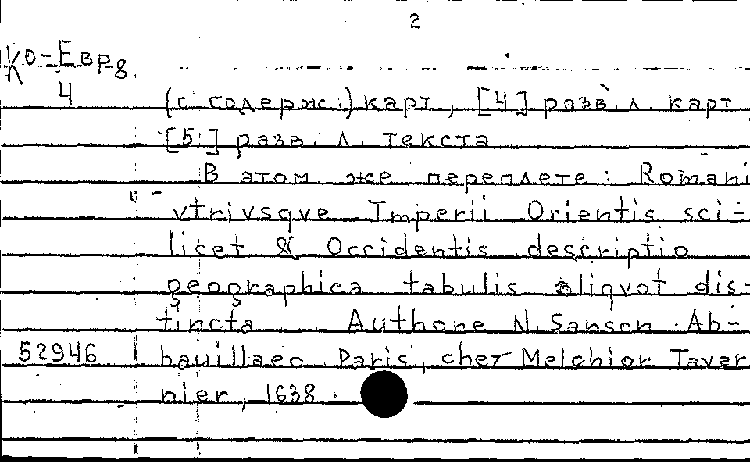 2
Ко-Евр8
4
(с содерж.) карт, [4] разв. л. карт
[5] разв. л. текста
В этом же переплете: Romani
vtrivsqve Imperii Orientis sci-
licet & Occidentis descriptio
geographica tabulis aliqvot dis-
tincta Authore N. Sanson Ab-
52946 bauillaeo Paris, chez Melchior Taver
nier, 1638.